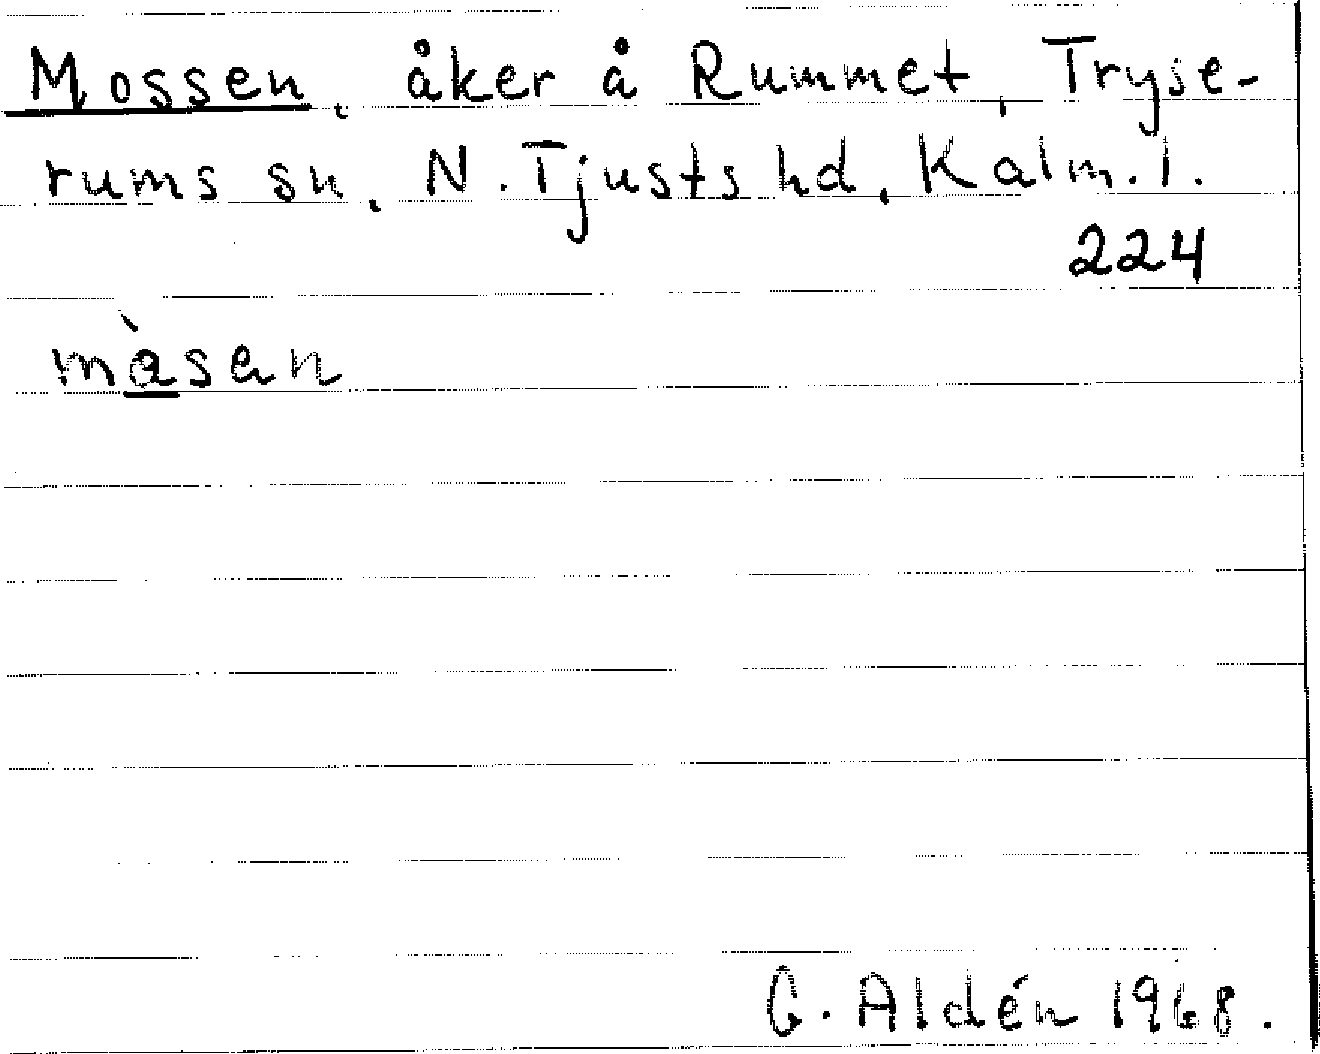 Mossen, åker å Rummet, Tryse-
rums sn, N. Tjusts hd, Kalm. l.
224
màsen
G. Aldén 1968.